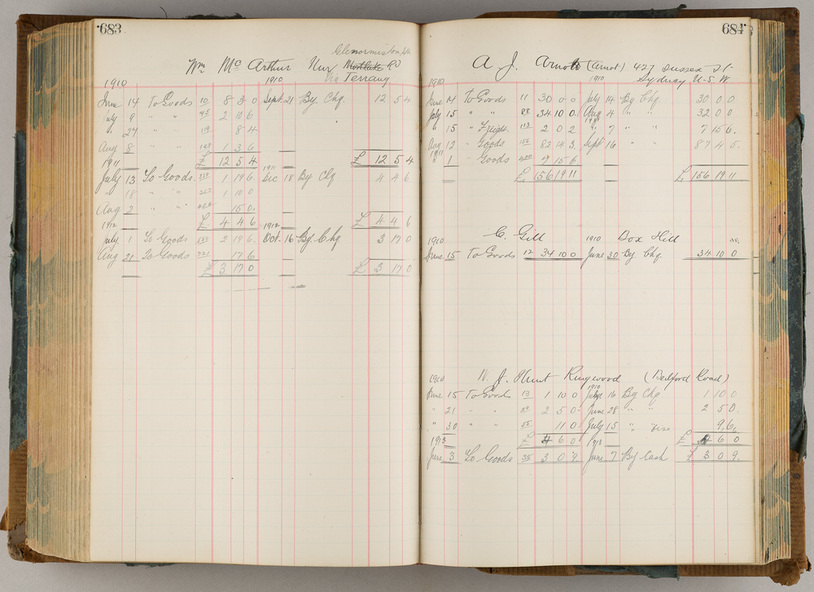 683
Glenormiston Rd
Wm Mc Arthur Nur Rd
via Terrang
1910 1910
June 14 To Goods 10 8 3 0 Sept 21 By Chq. 12 5 4
July 8 " " 93 2 10 6
" 27 " " 8 4
Aug 8 " " 1 3 6
1911 £ 12 5 4 1911 £ 12 5 4
July 13 To Goods 1 19 6 Dec 18 By Chq 4 4 6
" 18 " " 1 10 0
Aug 2 " " 15 0
1912 £ 4 4 6 1912 £ 4 4 6
July 1 To Goods 2 19 6 Oct. 16 By Chq 3 17 0
Aug 21 To Goods 17 6
£ 3 17 0
684
A J. Arnott (Arnot) 427 Sussex St
Sydney N.S.W
1910 1910
June 14 To Goods 11 30 0 0 July 14 By Chq 30 0 0
July 15 " " 34 10 0 Aug 4 " " 32 0 0
" 15 " Freight 2 0 2 " 7 " 7 15 6
Aug 12 " Goods 82 14 3 Sept 16 " " 87 4 5
1911
1 " Goods 7 15 6
£ 156 19 11 £ 156 19 11
1910 C. Gill 1910 Box Hill
June 15 To Goods 12 34 10 0 June 30 By Chq. 34 10 0
1910 W J. Hunt Ringwood (Bedford Road)
1910
June 15 To Goods 13 1 10 0 July 16 By Chq 1 10 0
" 21 " " 2 5 0 June 28 " " 2 5 0
" 30 " " 11 0 July 15 " 9 6
1913 £ 4 6 0 1913 £ 4 6 0
June 3 To Goods 35 3 0 9 June 7 By Cash £ 3 0 9